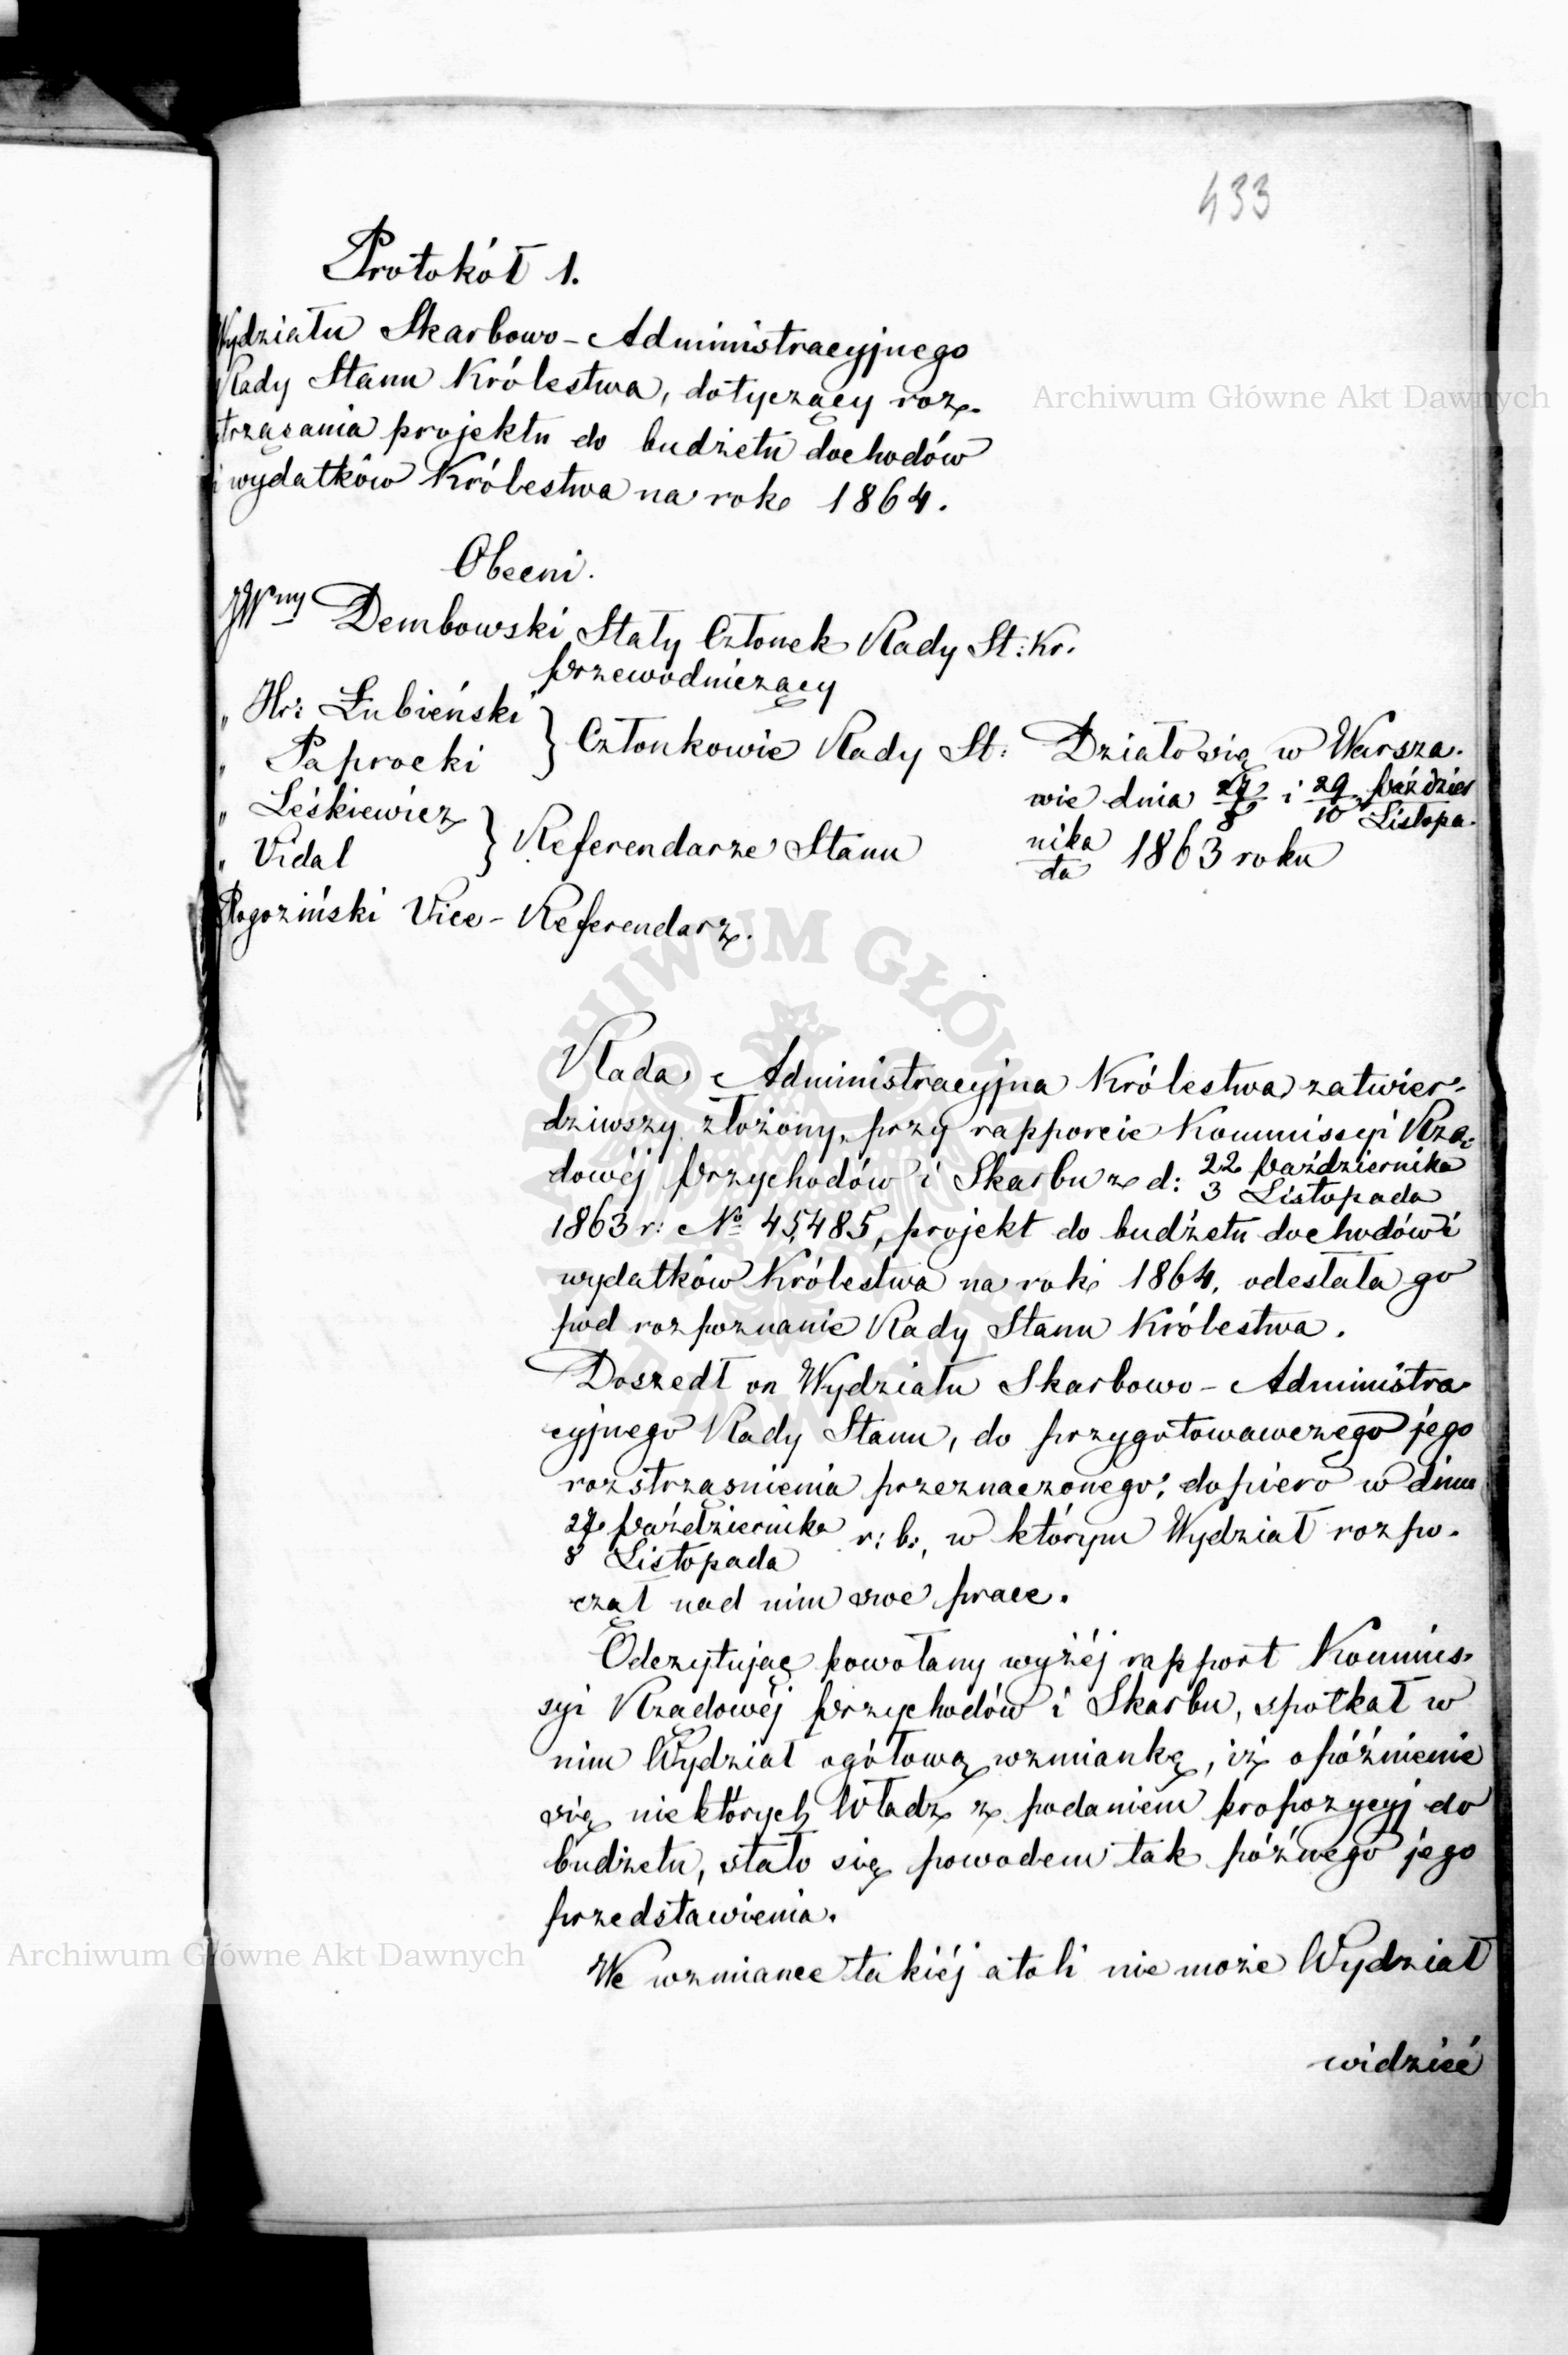 433
Protokół 1.
Wydziału Skarbowo-Administracyjnego
Rady Stanu Królestwa, dotyczący roz-
trząsania projektu do budżetu dochodów
i wydatków Królestwa na rok 1864.
Obecni.
JWny Dembowski Stały Członek Rady St: Kr.
Przewodniczący
" Hr: Łubieński
" Paprocki } Członkowie Rady St:
" Leśkiewicz
" Vidal } Referendarze Stanu
Rogoziński Vice-Referendarz.
Działo się w Warsza-
wie dnia 27/8 i 29/10 Paździer/Listopa-
nika/da 1863 roku
Rada Administracyjna Królestwa zatwier-
dziwszy złożony, przy rapporcie Kommissyi Rzą-
dowéj Przychodów i Skarbu z d: 22 Października
3 Listopada
1863 r: No 45,485, projekt do budżetu dochodów i
wydatków Królestwa na rok 1864, odesłała go
pod rozpoznanie Rady Stanu Królestwa.
Doszedł on Wydziału Skarbowo-Administra-
cyjnego Rady Stanu, do przygotowawczego jego
rozstrząśnienia przeznaczonego, dopiero w dniu
27 Października
8 Listopada r: b:, w którym Wydział rozpo-
czął nad nim swe prace.
Odczytując powołany wyżéj rapport Kommis-
syi Rządowéj Przychodów i Skarbu, spotkał w
nim Wydział ogółową wzmiankę, iż opóźnienie
się niektórych Władz z podaniem propozycyj do
budżetu, stało się powodem tak późnego jego
przedstawienia.
We wzmiance takiéj atoli nie może Wydział
widzieć
Archiwum Główne Akt Dawnych
Archiwum Główne Akt Dawnych